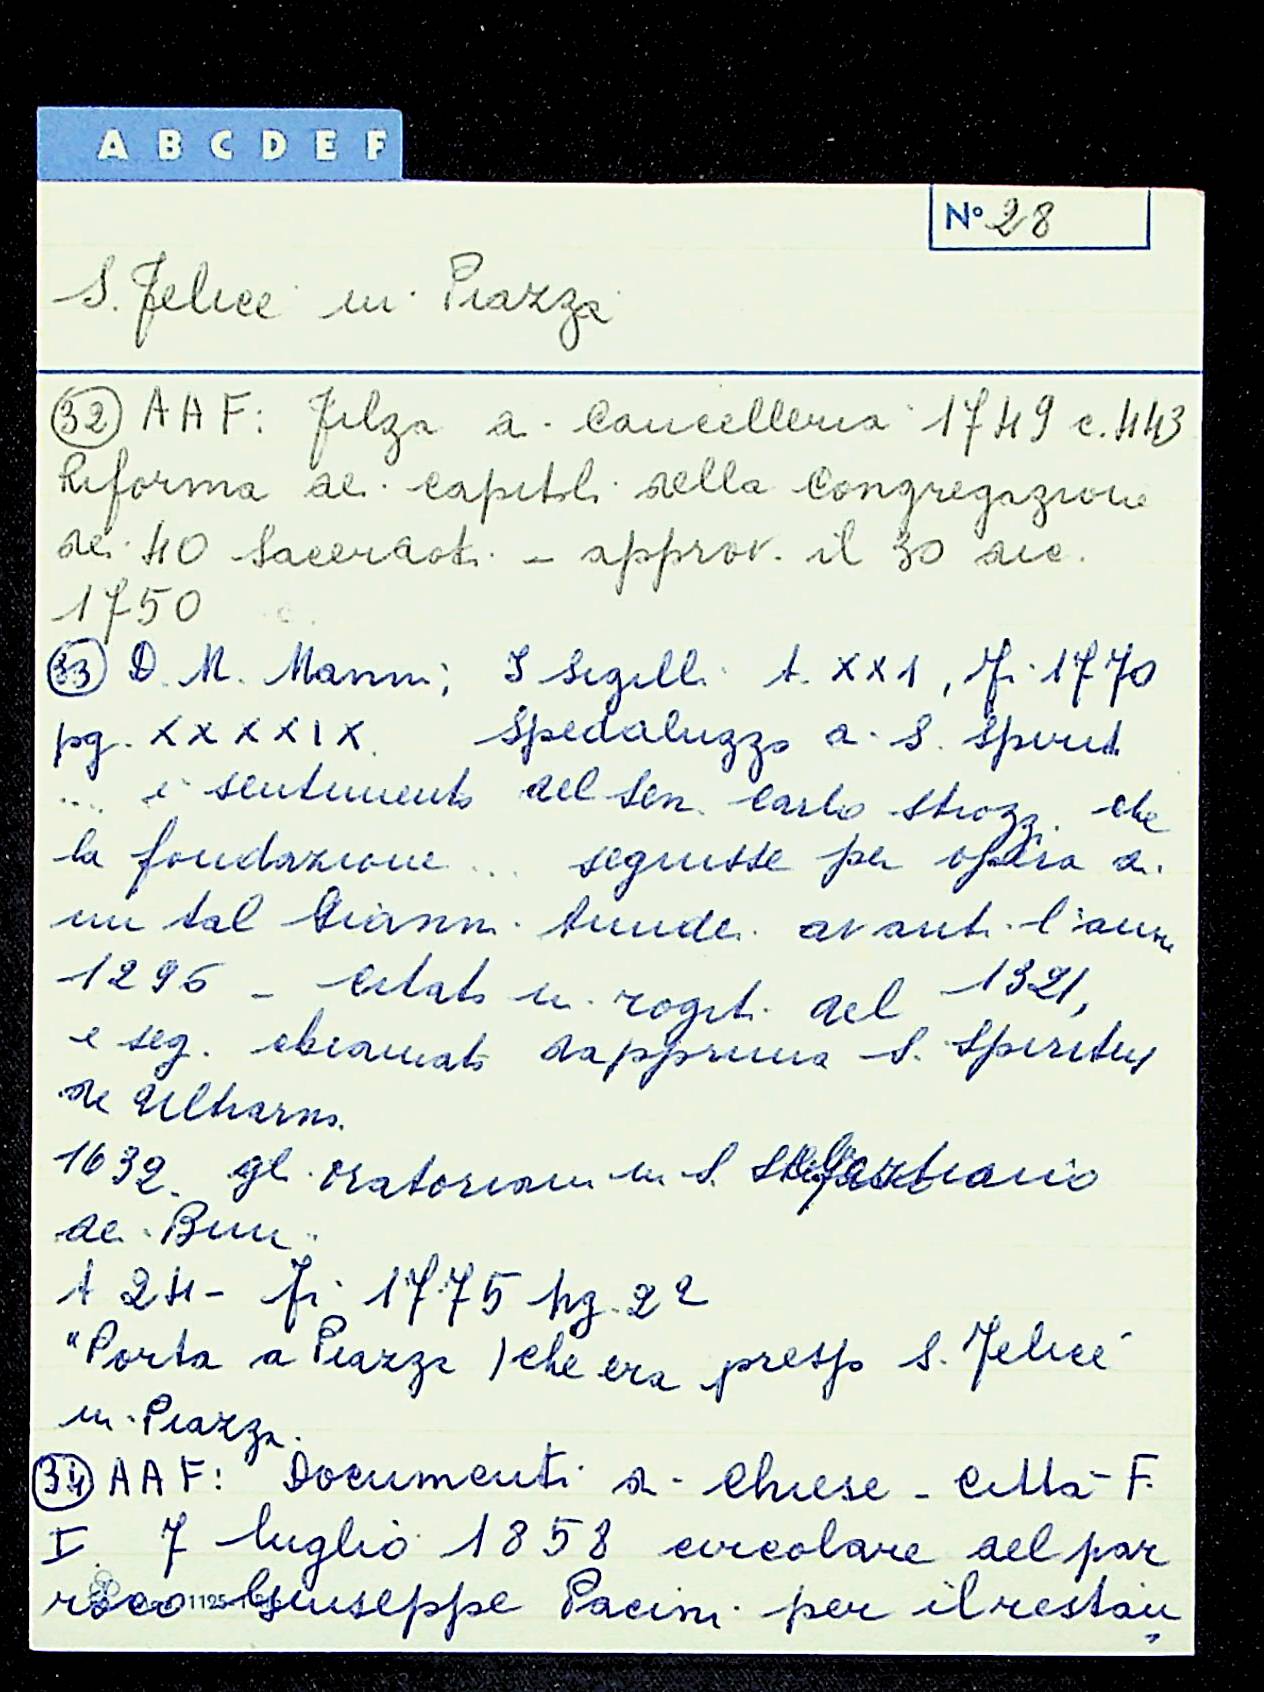 A B C D E F
N° 28
S. Felice in Piazza
32 AAF: Filza di Cancelleria 1749 c. 443
Riforma dei capitoli della Congregazione
dei 40 Sacerdoti - approv. il 30 dic.
1750
33 D. M. Manni; I Sigilli t. XXI, Fi 1770
pg. XXXXIX. Spedaluzzo di S. Spirito
.... è sentimento del Sen. Carlo Strozzi che
la fondazione ... seguisse per opera di
un tal Gianni avanti l'anno
1296 - citato in rogiti del 1321,
e seg. chiamato dapprima S. Spiritus
de Ultrarno.
1632. gli oratoriani in S.
dei Bini.
t 24 - Fi 1775 pg. 22
"Porta a Piazza) che era presso S. Felice
in Piazza.
34 AAF: Documenti di Chiese - Città - F.
I 7 luglio 1858 circolare del par
roco Giuseppe Pacini per il restau